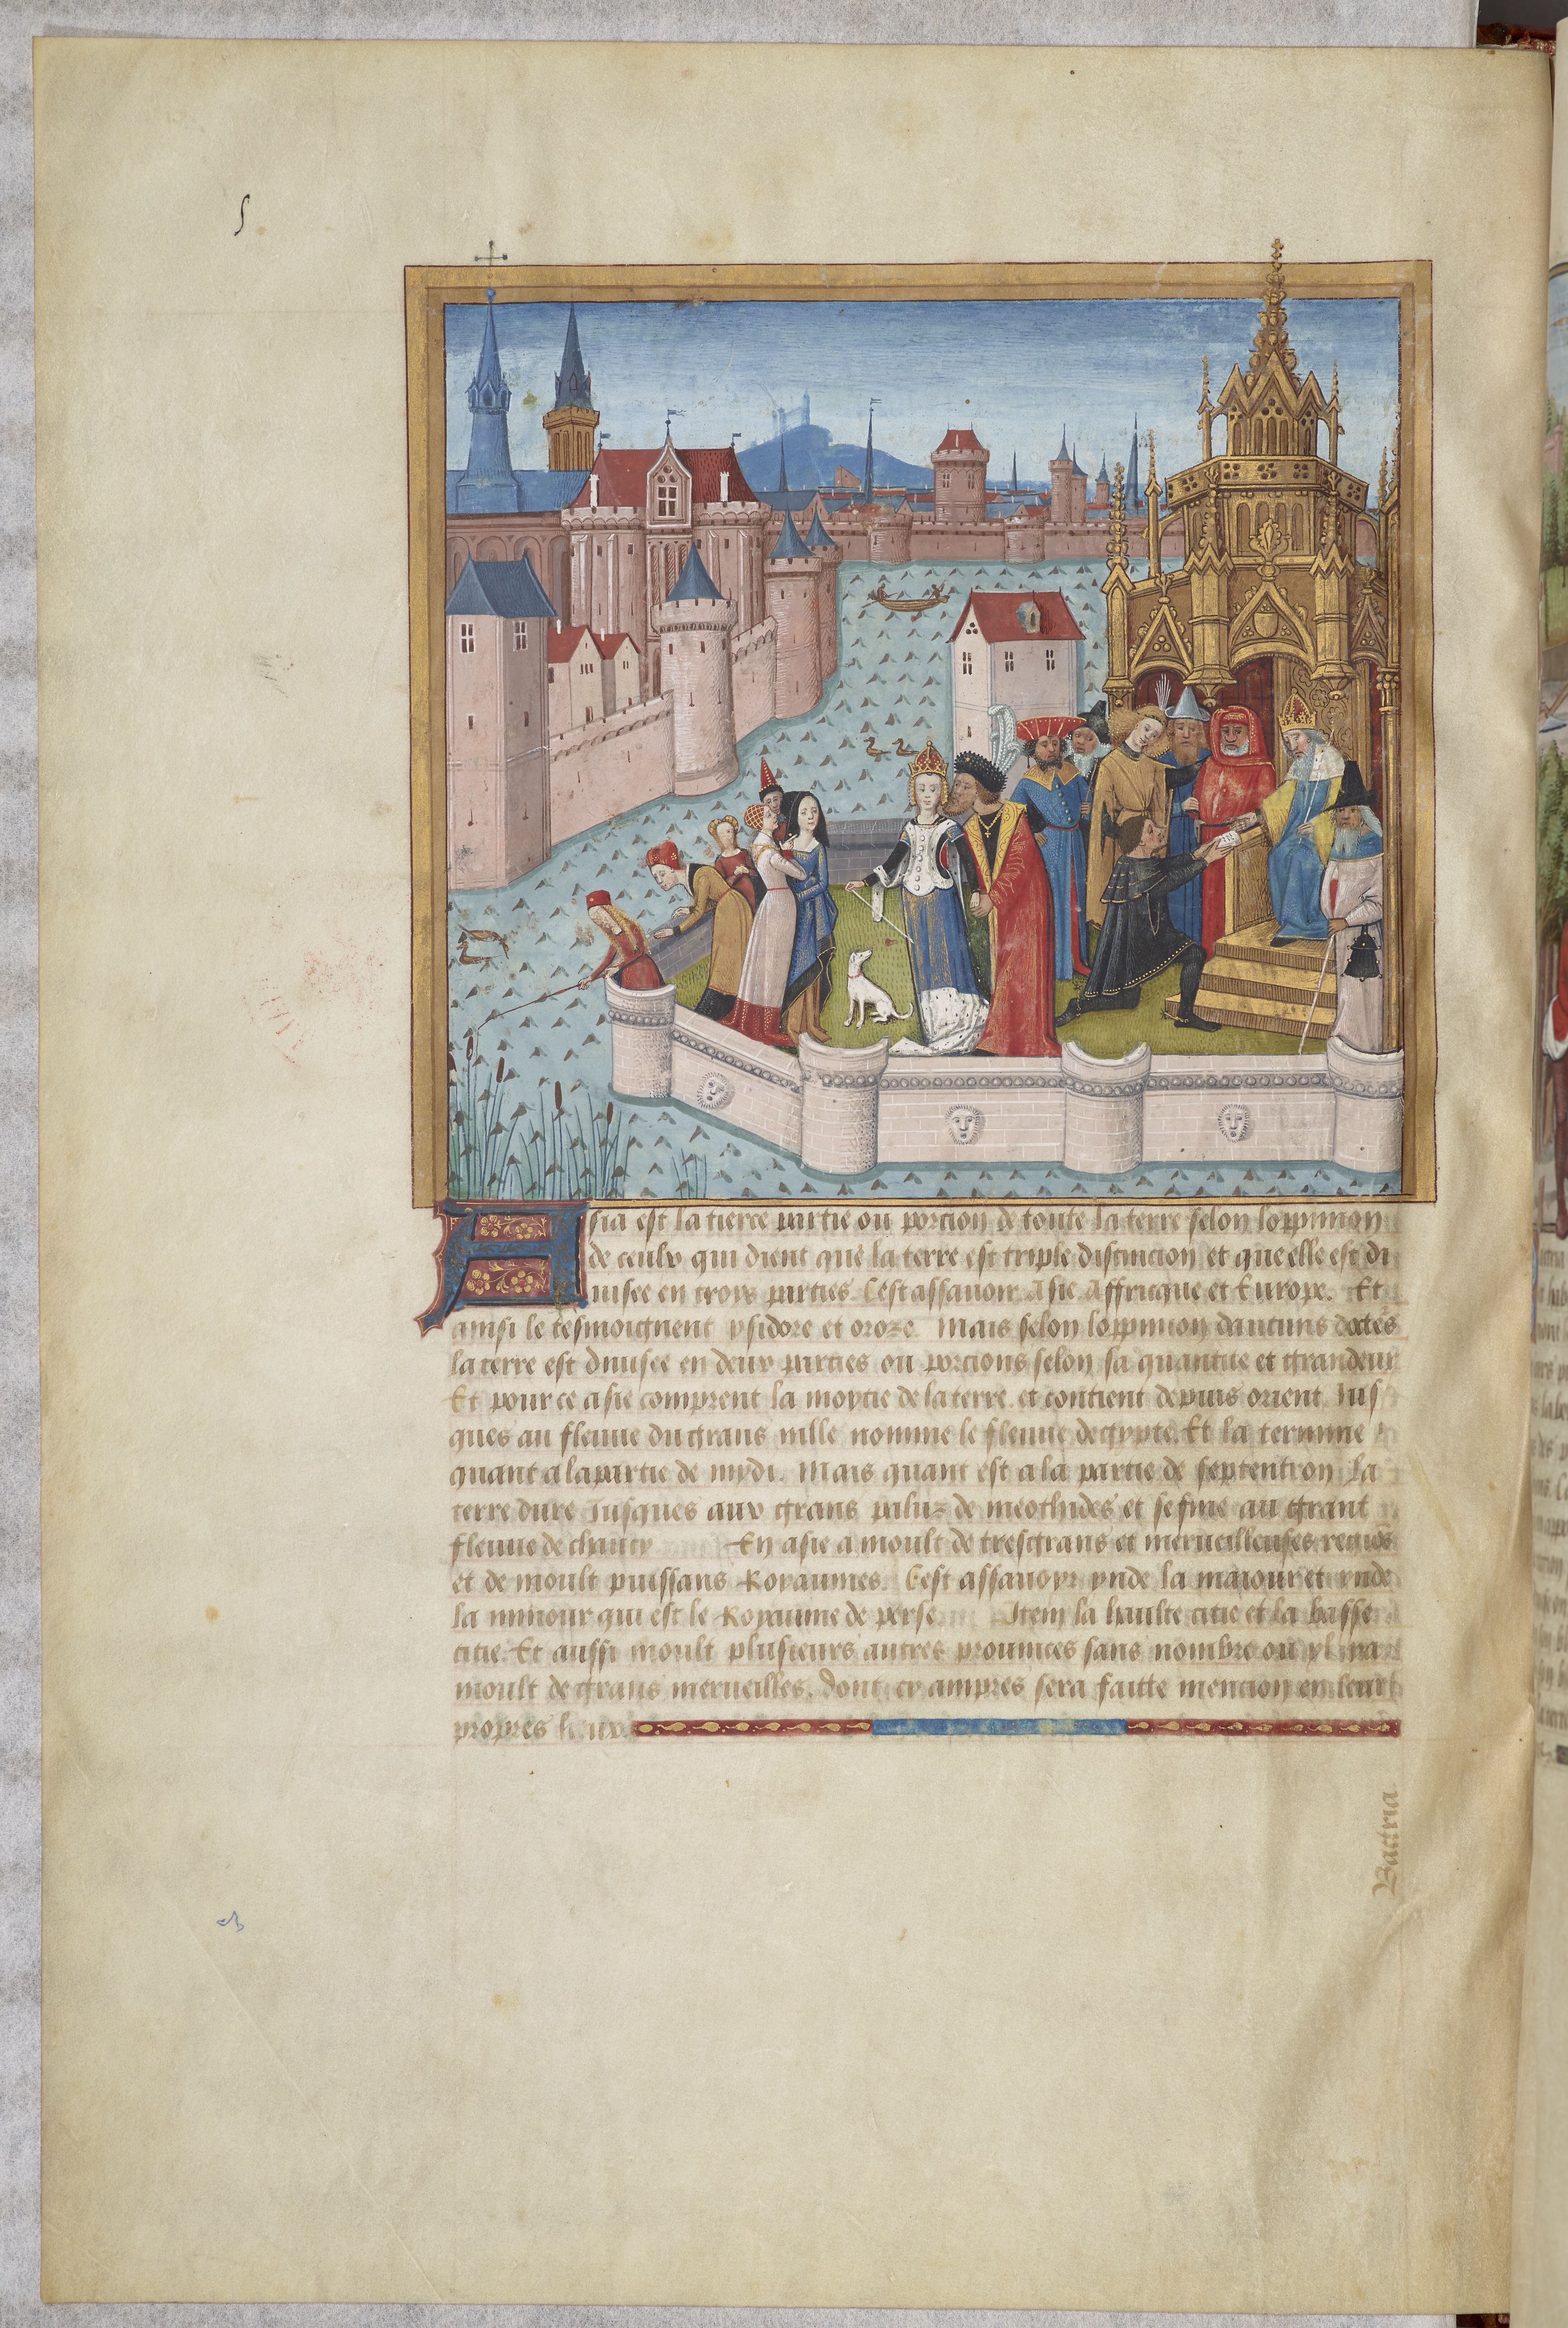 Asia est la tierce partie ou porcion de toute la terre selon loppinion
de ceulx qui dient que la terre est triple distincion et que elle est di
uisee en trois parties. Cest assauoir Asie Affricque et Europe. Et
ainsi le tesmoignent ysidore et oroze. Mais selon loppinion daucuns doctes
la terre est diuisee en deux parties ou porcions selon sa quantite et grandeur
Et pour ce asie comprent la moytie de la terre. et contient depuis orient Jus
ques au fleuue du grans nille nomme le fleuue degypte. Et la termine
quant a la partie de mydi. Mais quant est a la partie de septentrion la
terre dure Jusques aux grans paluz de meothides et se fine au grant
fleuue de En asie a moult de tresgrans et merueilleuses regiõs
et de moult puissans Royaumes. Cest assauoyr ynde la maiour et ynde
la minour qui est le Royaume de perse. Item la haulte citie et la basse
citie. Et aussi moult plusieurs autres prouinces sans nombre ou yl ya
moult de grans merueilles. dont cy ampres sera faitte mencion en leurs
propres lieux
Bactria